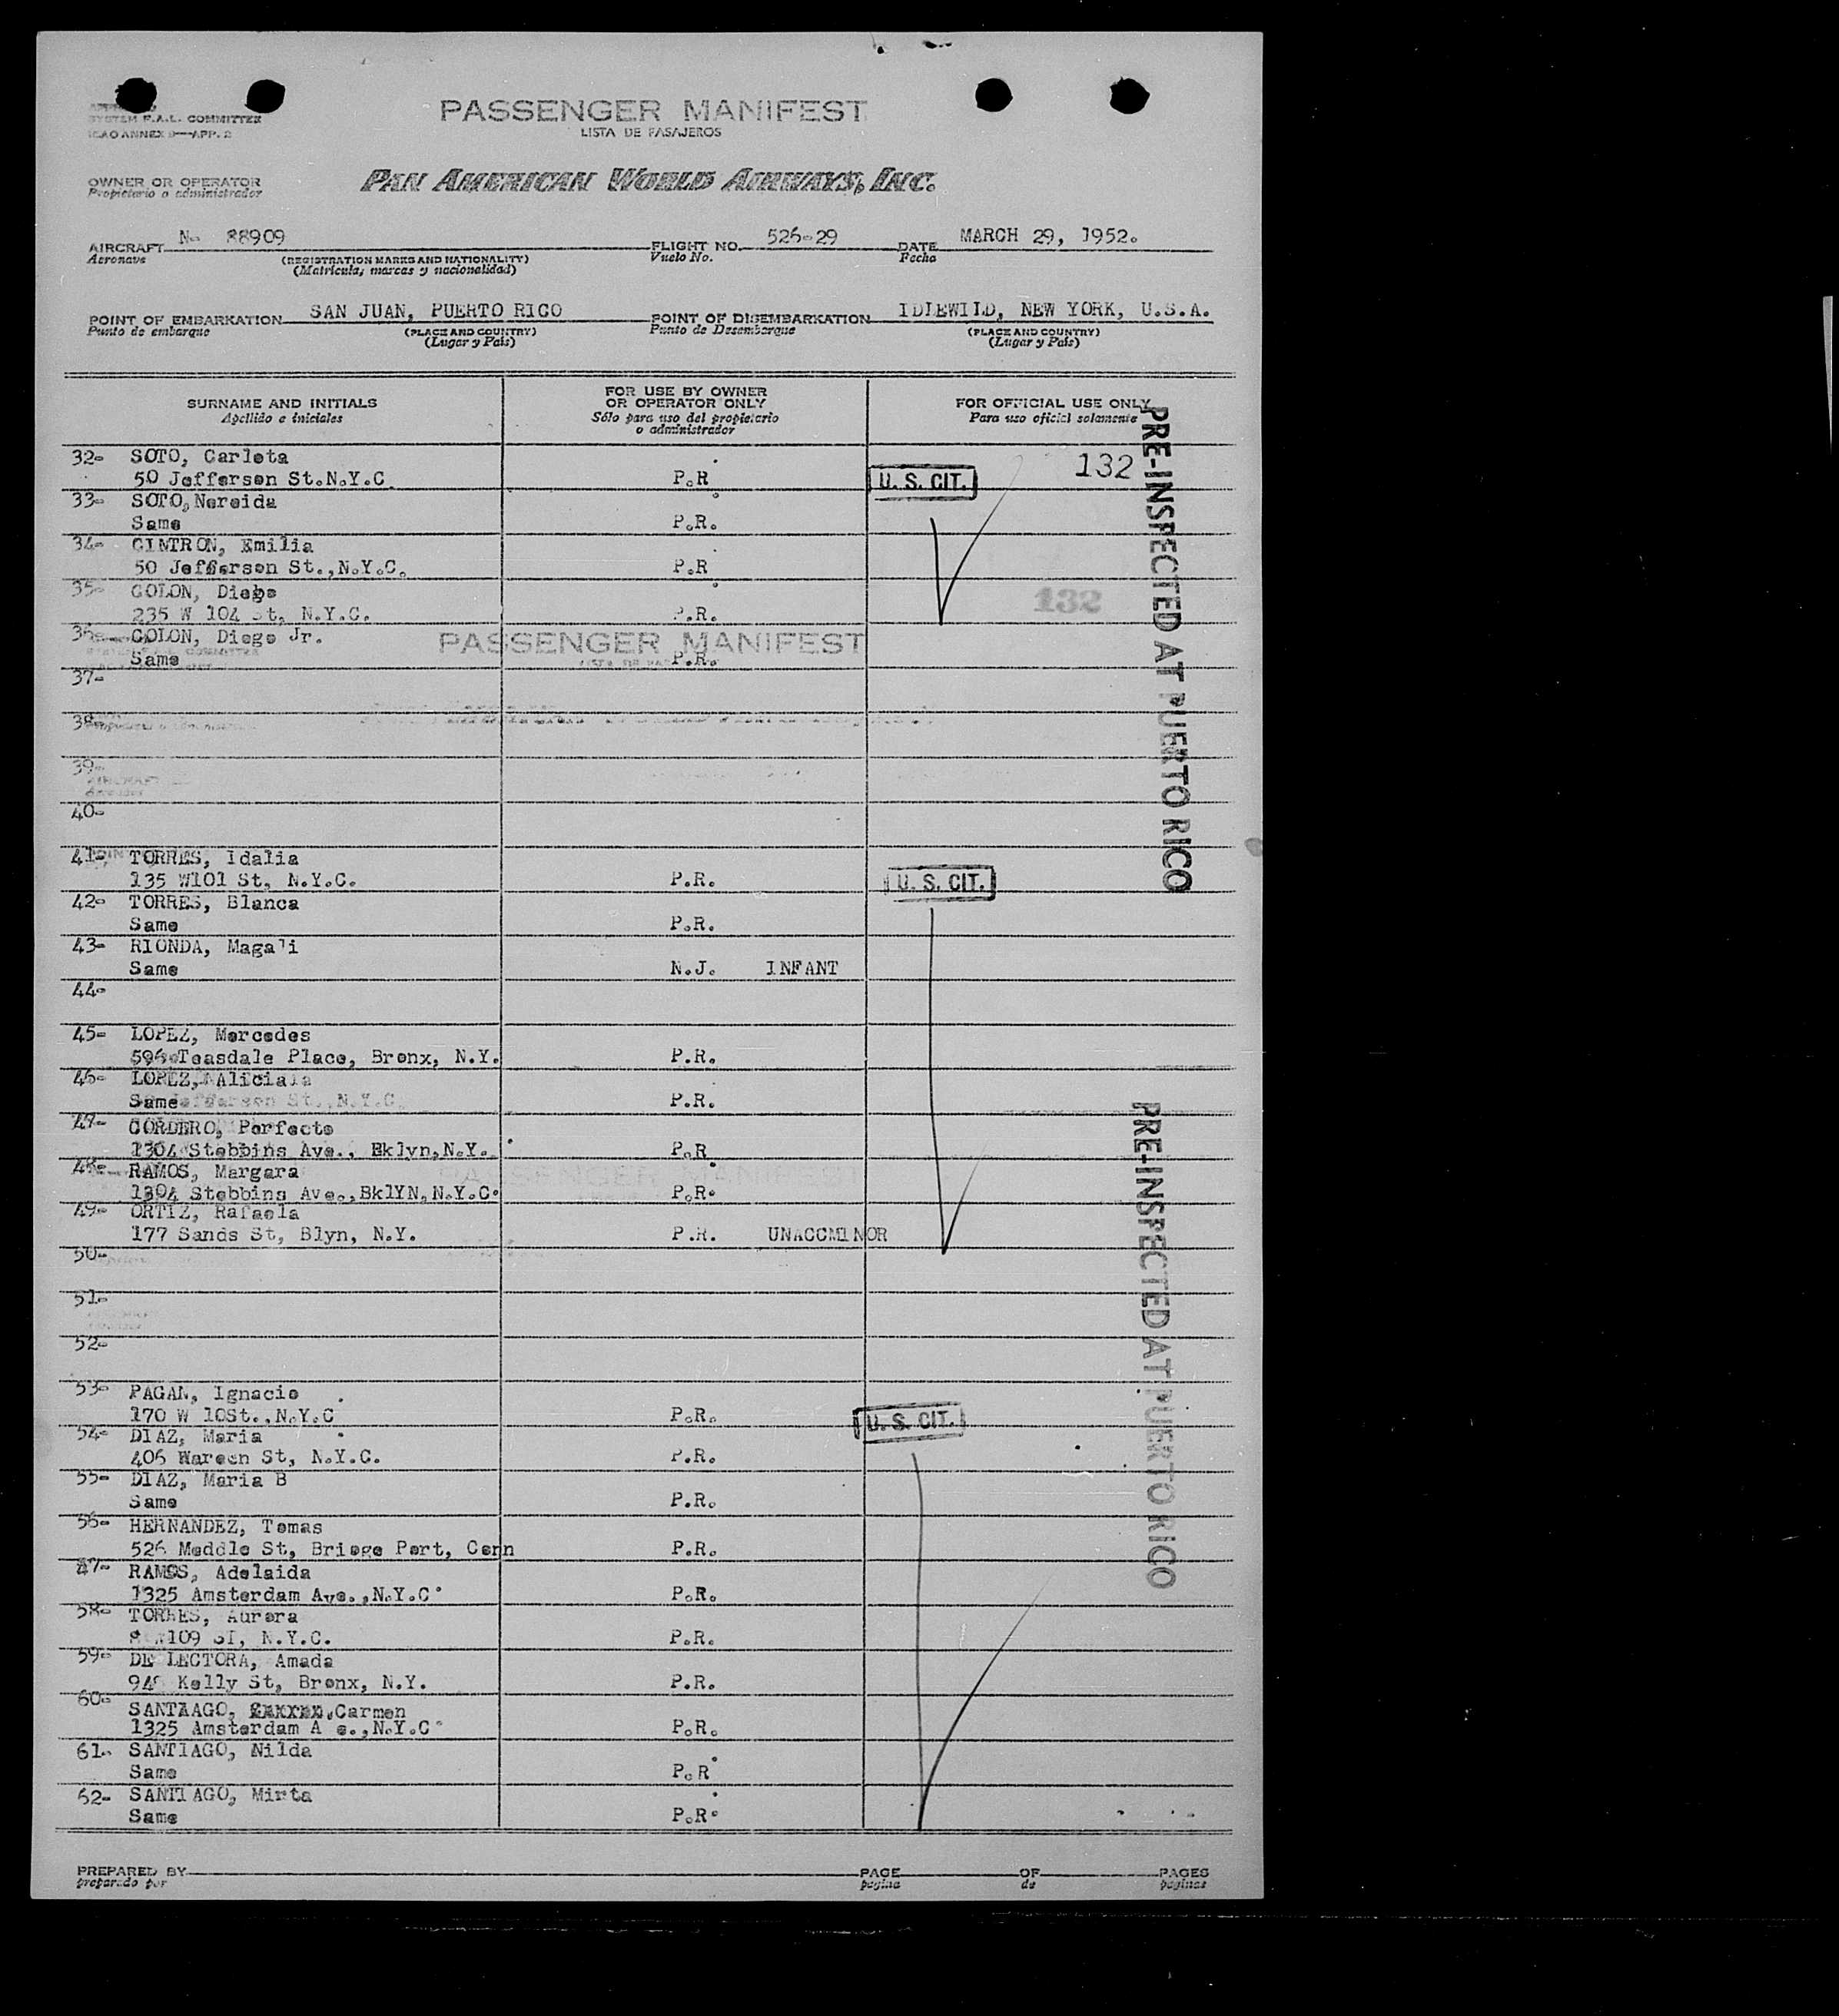 SYSTEM F.A.L. COMMITTEE
ICAO ANNEX 9—APP. 2
PASSENGER MANIFEST
LISTA DE PASAJEROS
OWNER OR OPERATOR
Propietario o administrador
PAN AMERICAN WORLD AIRWAYS, INC.
AIRCRAFT N- 88909 FLIGHT NO. 526-29 DATE MARCH 29, 1952.
Aeronave (REGISTRATION MARKS AND NATIONALITY) Vuelo No. Fecha
(Matrícula, marcas y nacionalidad)
POINT OF EMBARKATION SAN JUAN, PUERTO RICO POINT OF DISEMBARKATION IDLEWILD, NEW YORK, U.S.A.
Punto de embarque (PLACE AND COUNTRY) Punto de Desembarque (PLACE AND COUNTRY)
(Lugar y País) (Lugar y País)
SURNAME AND INITIALS FOR USE BY OWNER OR OPERATOR ONLY FOR OFFICIAL USE ONLY
Apellido e iniciales Sólo para uso del propietario o administrador Para uso oficial solamente
32- SOTO, Carlota 132
50 Jefferson St.N.Y.C. P.R U. S. CIT.
33- SOTO,Nereida
Same P.R.
34- CINTRON, Emilia
50 Jefferson St.,N.Y.C. P.R
35- COLON, Diego 132
235 W 104 St, N.Y.C. P.R.
36- COLON, Diego Jr. PASSENGER MANIFEST
Same P.R.
37-
38-
39-
40-
41- TORRES, Idalia
135 W101 St, N.Y.C. P.R. U. S. CIT.
42- TORRES, Blanca
Same P.R.
43- RIONDA, Magali
Same N.J. INFANT
44-
45- LOPEZ, Mercedes
596 Teasdale Place, Bronx, N.Y. P.R.
46- LOPEZ, Alicia
Same P.R.
47- CORDERO, Perfecto
1304 Stebbins Ave., Bklyn,N.Y. P.R
48- RAMOS, Margara
1304 Stebbins Ave.,BklYN,N.Y.C. P.R.
49- ORTIZ, Rafaela
177 Sands St, Blyn, N.Y. P.R. UNACCMINOR
50-
51-
52-
53- PAGAN, Ignacio
170 W 10St.,N.Y.C P.R. U. S. CIT.
54- DIAZ, Maria
406 Wareen St, N.Y.C. P.R.
55- DIAZ, Maria B
Same P.R.
56- HERNANDEZ, Tomas
526 Meddle St, Briege Port, Conn P.R.
47- RAMOS, Adelaida
1325 Amsterdam Ave.,N.Y.C. P.R.
58- TORRES, Aurora
109 ST, N.Y.C. P.R.
59- DE LECTORA, Amada
Kelly St, Bronx, N.Y. P.R.
60- SANTAAGO, Carmen
1325 Amsterdam A e.,N.Y.C. P.R.
61- SANTIAGO, Nilda
Same P.R
62- SANTIAGO, Mirta
Same P.R.
PRE-INSPECTED AT PUERTO RICO
PRE-INSPECTED AT PUERTO RICO
PREPARED BY PAGE OF PAGES
preparado por página de páginas